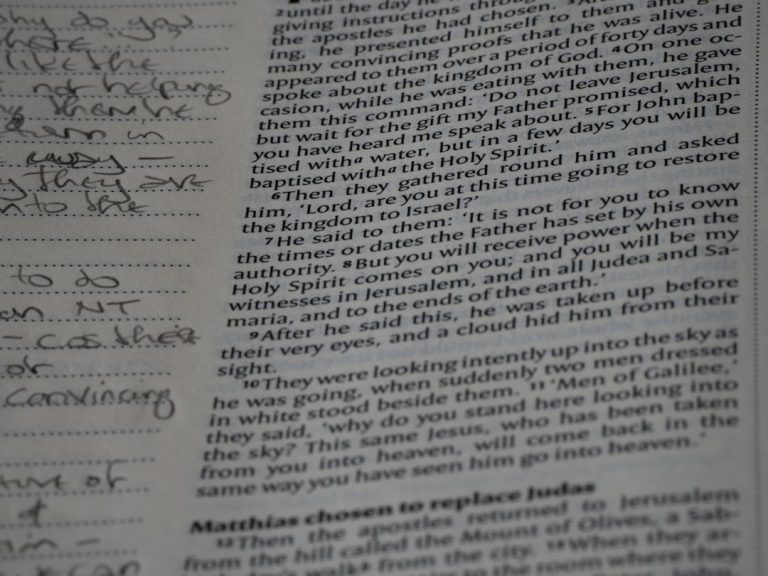 why do you
where
like the
not helping
them in
away –
they are
to the
to do
an NT
– cos their
or
convincing
of
&
2until the day he
giving instructions through
the apostles he had chosen.
ing, he presented himself to them and
many convincing proofs that he was alive. He
appeared to them over a period of forty days and
spoke about the kingdom of God. 4On one oc-
casion, while he was eating with them, he gave
them this command: 'Do not leave Jerusalem,
but wait for the gift my Father promised, which
you have heard me speak about. 5For John bap-
tised witha water, but in a few days you will be
baptised witha the Holy Spirit.'
6Then they gathered round him and asked
him, 'Lord, are you at this time going to restore
the kingdom to Israel?'
7He said to them: 'It is not for you to know
the times or dates the Father has set by his own
authority. 8But you will receive power when the
Holy Spirit comes on you; and you will be my
witnesses in Jerusalem, and in all Judea and Sa-
maria, and to the ends of the earth.'
9After he said this, he was taken up before
their very eyes, and a cloud hid him from their
sight.
10They were looking intently up into the sky as
he was going, when suddenly two men dressed
in white stood beside them. 11'Men of Galilee,'
they said, 'why do you stand here looking into
the sky? This same Jesus, who has been taken
from you into heaven, will come back in the
same way you have seen him go into heaven.'
Matthias chosen to replace Judas
12Then the apostles returned to Jerusalem
from the hill called the Mount of Olives, a Sab-
walk from the city. 13When they ar-
to the room where they